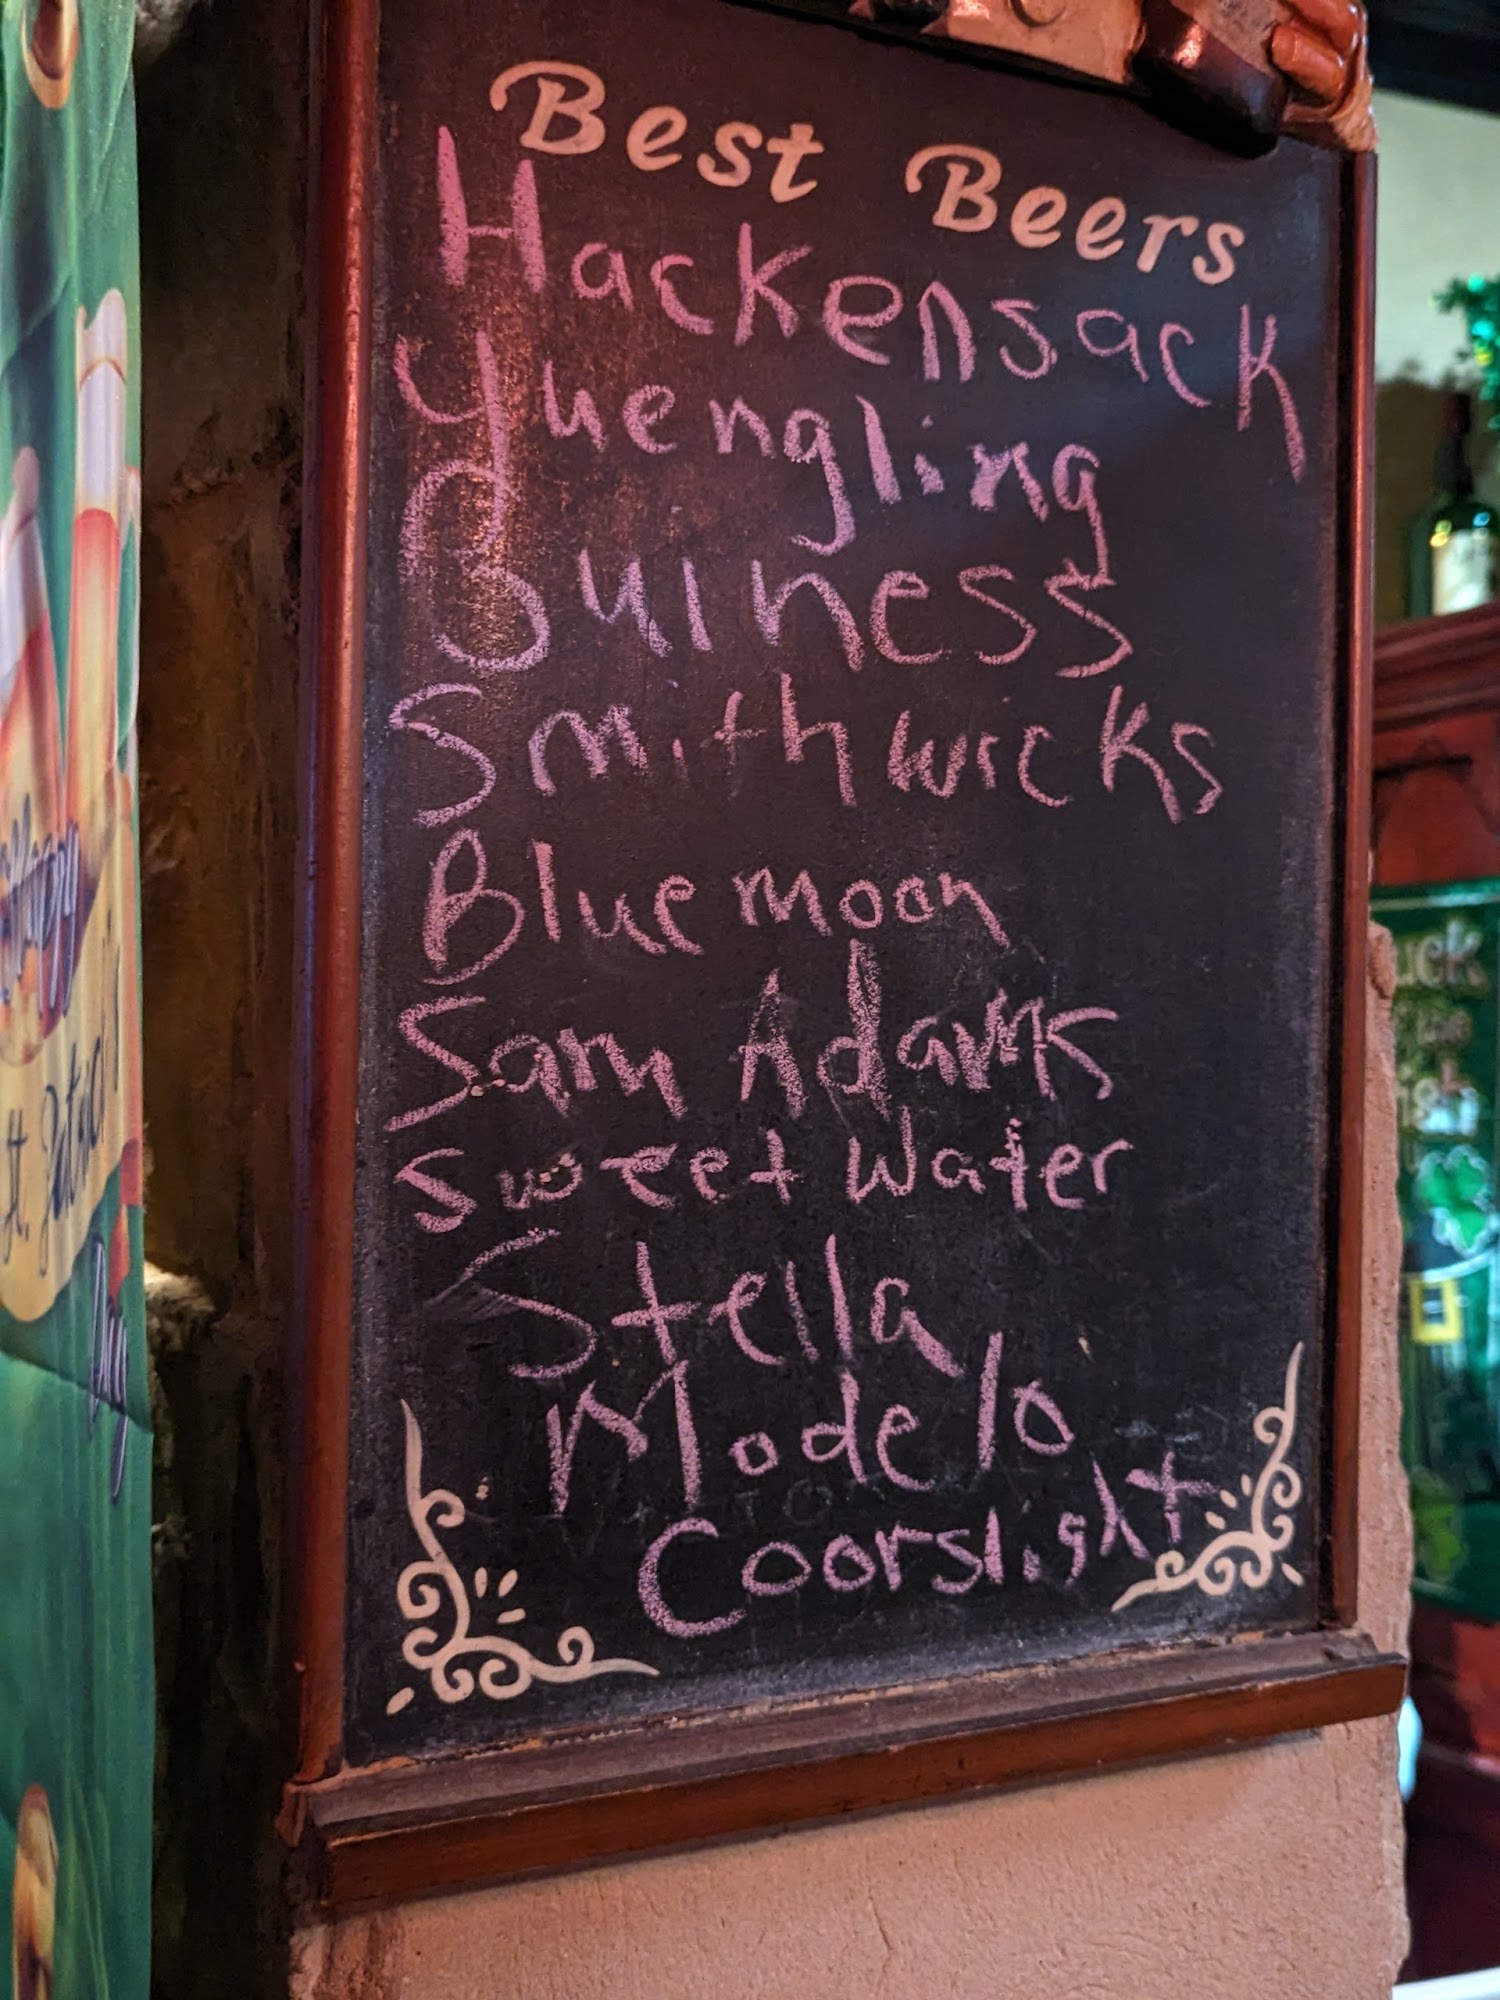 Best Beers
Hackensack
Yuengling
Guiness
Smithwicks
Blue moon
Sam Adams
Sweet Water
Stella
Modelo
Coorslight
Happy
St. Patrick's
Day